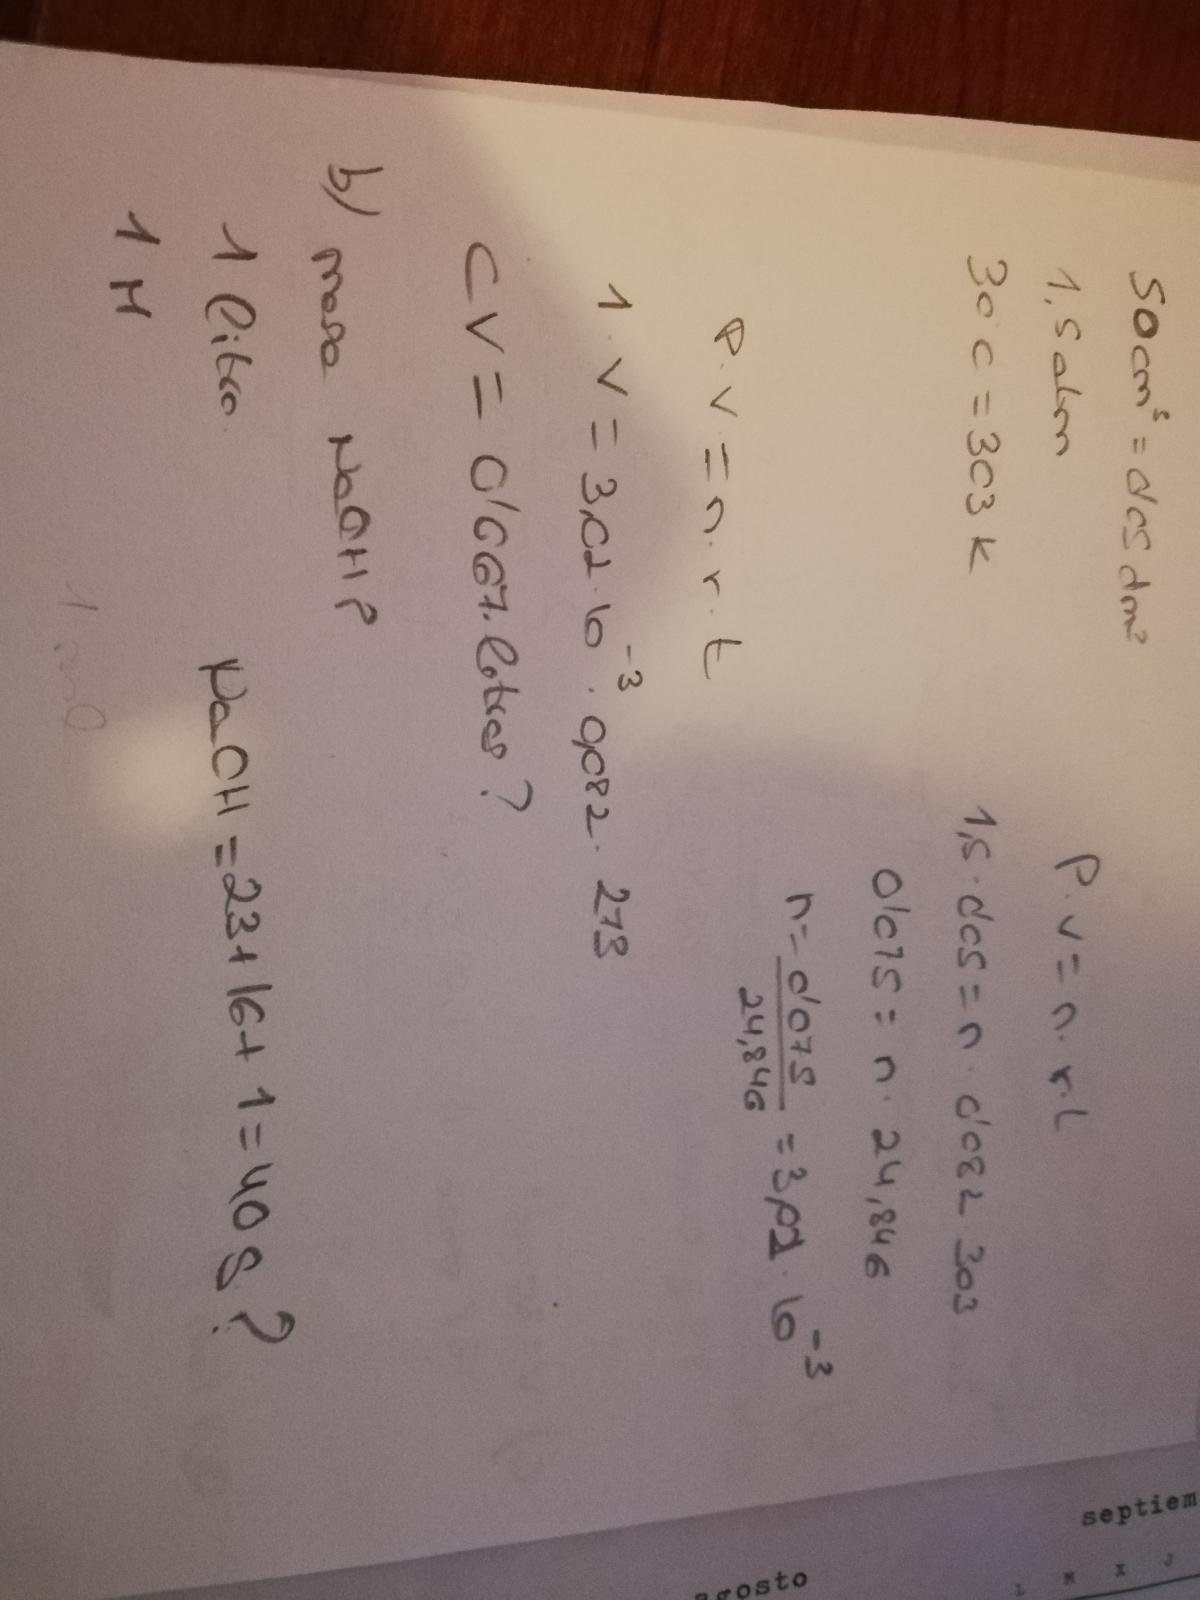 50cm³ = 0'05 dm³
1,5 atm
30ºC = 303 K
P.V = n.r.t
1,5.0'05 = n.0'082 303
0'075 = n.24,846
n = 0'075
24,846
= 3,02.10⁻³
P.V = n.r.t
1.V = 3,02.10⁻³.0,082.273
CV = 0'067.litros?
b) masa NaOH?
1 litro.
NaOH = 23+16+1 = 40 g.?
1 M
1 mol
septiem
agosto
L M X J